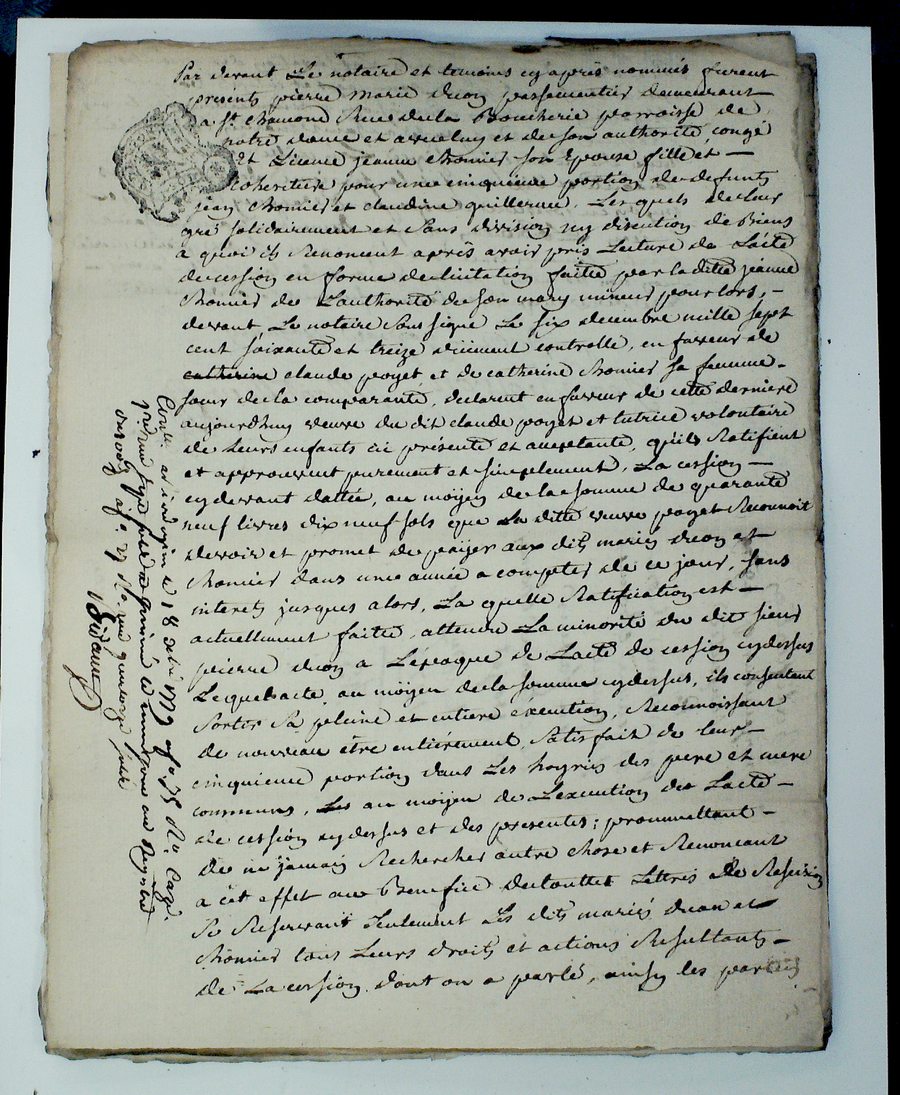 Par devant Le notaire et temoins cy après nommés furent
présents pierre marie duon passementier demeurant
a St. Chamond Rue de la Boucherie parroisse de
notre dame et avec luy et de son authorité congé
et Licence jeanne Chonier son Epouse fille et
coheritiere pour une cinquieme portion de defunts
jean Chonier et claudine guillerme, Lesquels de leur
gré solidairement et sans division ny discution de Biens
a quoi ils Renoncent après avoir pris Lecture de L'acte
de cession en forme de licitation faitte par laditte jeanne
Chonier de L'authorité de son mary mineur pour lors,
devant Le notaire soussigné Le six decembre mille sept
cent soixante et treize duement controllé, en faveur de
catherine claude poyet et de catherine Chonier sa femme
sœur de la comparante, declarent en faveur de cette derniere
aujourdhuy veuve du dit claude poyet et tutrice volontaire
de Leurs enfants ici présente et acceptante, qu'ils Ratifient
et approuvent purement et simplement, La cession
cy devant dattée, au moÿen de la somme de quarante
neuf livres dix neuf sols que La ditte veuve poyet Reconnoit
devoir et promet de païer aux dits mariés duon et
Chonier dans une année a compter de ce jour, sans
interets jusques alors, La quelle Ratification est
actuellement faitte, attendu La minorité du dit sieur
pierre duon a L'époque de L'acte de cession cy dessus
Lequel acte, au moÿen de la somme cy dessus, ils consentent
sortir sa pleine et entiere éxécution, Reconnoissant
de nouveau être entiérement satisfait de leur
cinquieme portion dans Les hoyries des pere et mere
communs, au moÿen de L'execution de L'acte
de cession cy dessus et des presentes; promettant
de ne jamais Rechercher autre chose et Renoncant
a cet effet au Benefice de toutte Lettres de Rescision
se Reservant seulement Les dits mariés duon et
Chonier tous Leurs droits et actions Resultants
de La cession dont on a parlé, ainsy les parties